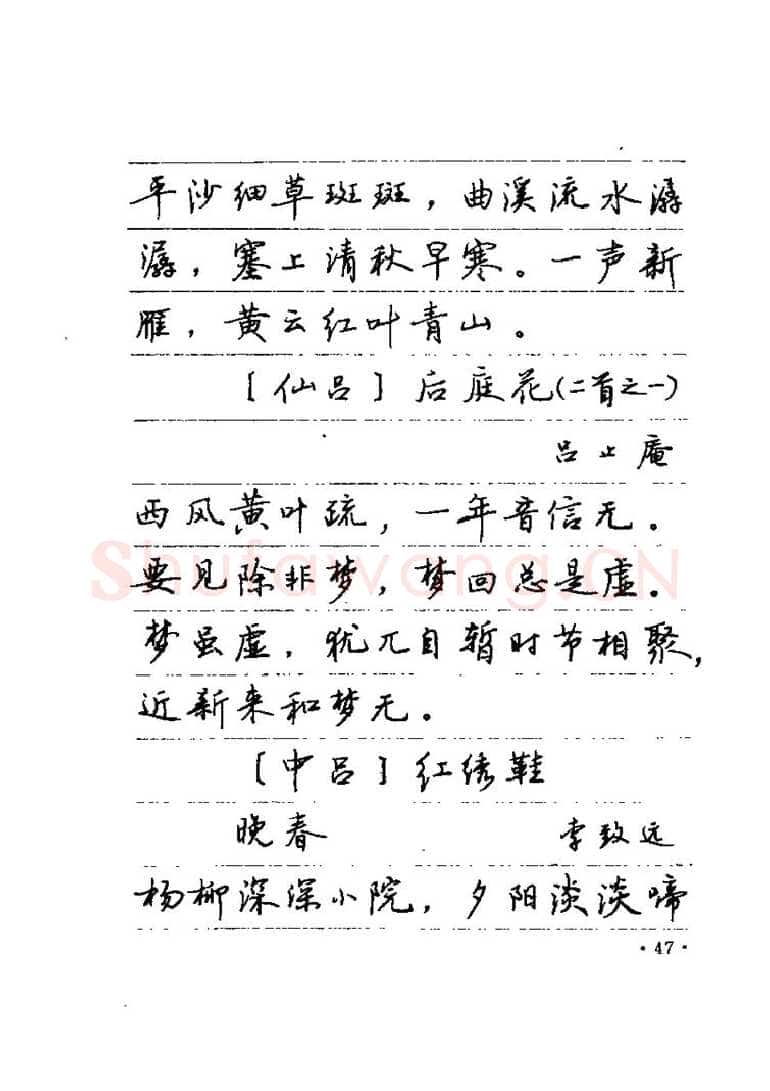 平沙细草斑斑，曲溪流水潺
潺，塞上清秋早寒。一声新
雁，黄云红叶青山。
［仙吕］后庭花(二首之一)
吕止庵
西风黄叶疏，一年音信无。
要见除非梦，梦回总是虚。
梦虽虚，犹兀自暂时节相聚，
近新来和梦无。
［中吕］红绣鞋
晚春 李致远
杨柳深深小院，夕阳淡淡啼
·47·
Shufawang.CN